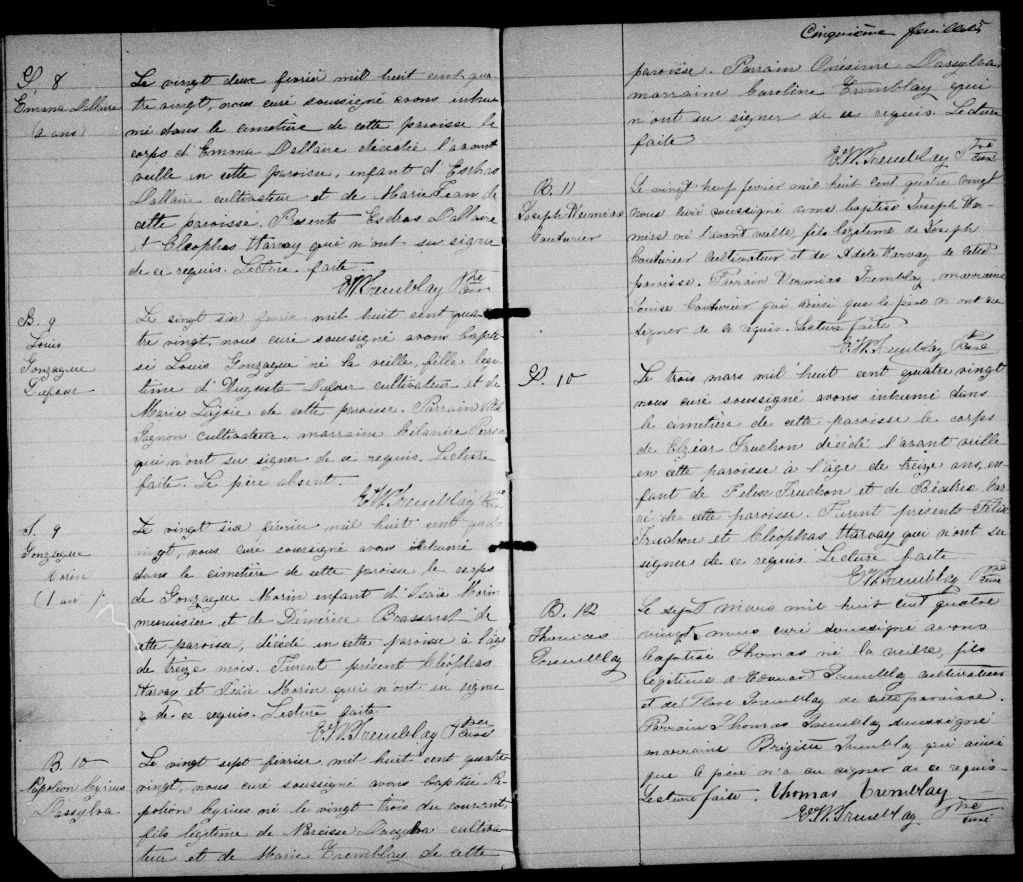 S. 8
Emma Dallaire
(2 ans)
Le vingt deux fevrier mil huit cent qua
tre vingt, nous curé soussigné avons inhu
mé dans le cimetière de cette paroisse le
corps d'Emma Dallaire decedée l'avant
veille en cette paroisse, enfant d'Esdras
Dallaire cultivateur et de Marie Jean de
cette paroisse. Presents Esdras Dallaire
& Cleophas Harvay qui n'ont su signer
de ce requis. Lecture faite.
E. W. Tremblay Ptre curé
B. 9
Louis
Gonzague
Dufour
Le vingt six fevrier mil huit cent qua
tre vingt nous curé soussigné avons bapti
sé Louis Gonzague né la veille, fille legi
time d'Auguste Dufour cultivateur et de
Marie Lajoie de cette paroisse. Parrain
Gagnon cultivateur, marraine
qui n'ont su signer de ce requis. Lecture
faite. Le père absent.
E. W. Tremblay Ptre
S. 9
Gonzague
Morin
(1 an)
Le vingt six fevrier mil huit cent quatre
vingt, nous curé soussigné avons inhumé
dans le cimetière de cette paroisse le corps
de Gonzague Morin enfant d'Isaïe Morin
menuisier et de Démérise Brassard de
cette paroisse, décédé en cette paroisse à l'âge
de treize mois. Furent présent Cléophas
Harvay et Isaïe Morin qui n'ont su signer
de ce requis. Lecture faite
E. W. Tremblay Ptre curé
B. 10
Napoléon Cyrius
Dassylva
Le vingt sept fevrier mil huit cent quatre
vingt, nous curé soussigné avons baptisé Na
poléon Cyrius né le vingt trois du courant,
fils légitime de Narcisse Dassylva cultiva
teur et de Marie Tremblay de cette
Cinquième feuillet
paroisse. Parrain Onesime Dassylva,
marraine Caroline Tremblay qui
n'ont su signer de ce requis. Lecture
faite
E. W. Tremblay Ptre curé
B. 11
Joseph Nérmias
Couturier
Le vingt neuf fevrier mil huit cent quatre vingt
nous curé soussigné avons baptisé Joseph
né l'avant veille, fils légitime de Joseph
Couturier cultivateur et de Adele Harvay de cette
paroisse. Parrain Tremblay, marraine
Louise Couturier qui ainsi que le père n'ont su
signer de ce requis. Lecture faite
E. W. Tremblay Ptre Curé
S. 10
Le trois mars mil huit cent quatre vingt
nous curé soussigné avons inhumé dans
le cimetière de cette paroisse le corps
de Elzéar Truchon décédé l'avant veille
en cette paroisse à l'âge de treize ans, en
fant de Felix Truchon et de Béatrix
de cette paroisse. Furent presents Félix
Truchon et Cléophas Harvay qui n'ont su
signer de ce requis. Lecture faite
E. W. Tremblay Ptre curé
B. 12
Thomas
Tremblay
Le sept mars mil huit cent quatre
vingt, nous curé soussigné avons
baptisé Thomas né la veille, fils
légitime d'Edouard Tremblay cultivateur
et de Flore Tremblay de cette paroisse.
Parrain Thomas Tremblay soussigné
marraine Brigitte Tremblay qui ainsi
que le père n'a su signer de ce requis
Lecture faite. Thomas Tremblay
E. W. Tremblay Ptre curé